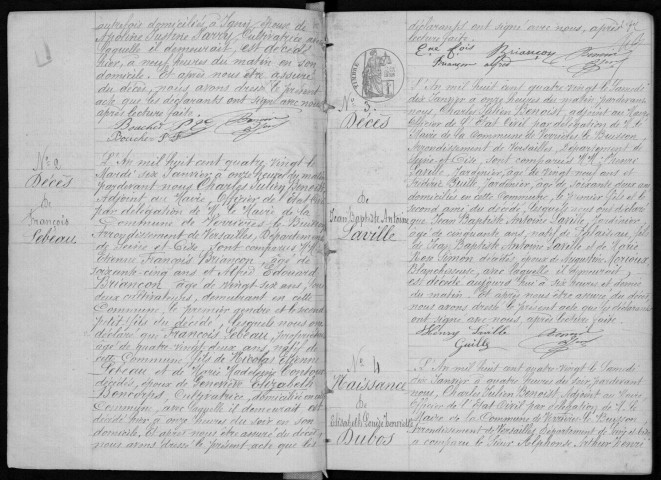 autrefois domiciliés à Igny, époux de
Apoline Justine Sarry, Cultivatrice avec
laquelle il demeurait, est décédé
hier, à neuf heures du matin en son
domicile. Et après nous être assuré
du décès, nous avons dressé le présent
acte que les déclarants ont signé avec nous
après lecture faite.
Boucher
Boucher
No 2
Décès
de
François
Lebeau
L'An mil huit cent quatre vingt le
Mardi six Janvier à onze heures du matin
pardevant nous Charles Julien Benoist
Adjoint au Maire, Officier de l'Etat Civil
par délégation de M. le Maire de la
Commune de Verrières le Buisson
Arrondissement de Versailles, Département
de Seine et Oise, sont comparus M.M.
Etienne François Briançon âgé de
soixante cinq ans et Alfred Edouard
Briançon âgé de vingt six ans, tous
deux cultivateurs, demeurant en cette
Commune, le premier gendre et le second
petit fils du décédé, lesquels nous ont
déclaré que François Lebeau,
âgé de quatre vingt deux ans, natif de
cette Commune, fils de Nicolas Etienne
Lebeau et de Marie Madeleine
décédés, époux de Geneviève Elizabeth
Boncorps, Cultivatrice, domiciliée en cette
Commune, avec laquelle il demeurait est
décédé hier à onze heures du soir en son
domicile. Et après nous être assuré du décès
nous avons dressé le présent acte que les
déclarants ont signé avec nous, après
lecture faite.
Briançon
Briançon alfred
TIMBRE
No 3.
Décès
de
Jean Baptiste Antoine
Laville
L'An mil huit cent quatre vingt le Samedi
dix Janvier à onze heures du matin pardevant
nous, Charles Julien Benoist, adjoint au Maire
Officier de l'Etat Civil par délégation de M. le
Maire de la Commune de Verrières le Buisson,
Arrondissement de Versailles, Département de
Seine et Oise, sont comparus M.M. Henri
Laville, Jardinier, âgé de vingt neuf ans et
Guille, Jardinier, âgé de soixante deux ans
domiciliés en cette Commune, le premier fils et le
second ami du décédé, lesquels nous ont déclaré
que Jean Baptiste Antoine Laville, Jardinier
âgé de cinquante ans, natif de Palaiseau, fils
de Jean Baptiste Antoine Laville et de Marie
Rose Simon décédés, époux de Augustine
Blanchisseuse, avec laquelle il demeurait,
est décédé aujourd'hui à six heures et demie
du matin. Et après nous être assuré du décès,
nous avons dressé le présent acte que les déclarants
ont signé avec nous, après lecture faite.
Henry Laville
Guille
No 4
Naissance
de
Elizabeth Louise Henriette
Dubos
L'An mil huit cent quatre vingt le Samedi
dix Janvier à quatre heures du soir pardevant
nous, Charles Julien Benoist Adjoint au Maire
Officier de l'Etat Civil par délégation de M. le
Maire de la Commune de Verrières le Buisson
Arrondissement de Versailles, Département de Seine et Oise
a comparu le Sieur Alphonse Arthur Honoré